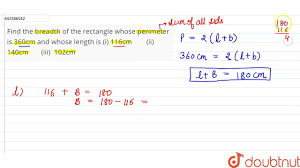 642566542
Find the breadth of the rectangle whose perimeter
is 360cm and whose length is (i) 116cm (ii)
140cm (iii) 102cm
Sum of all sides
P = 2 (l+b)
360 cm = 2 (l+b)
l + B = 180 cm
180
116
4
i) 116 + B = 180
B = 180 - 116 =
doubtnut